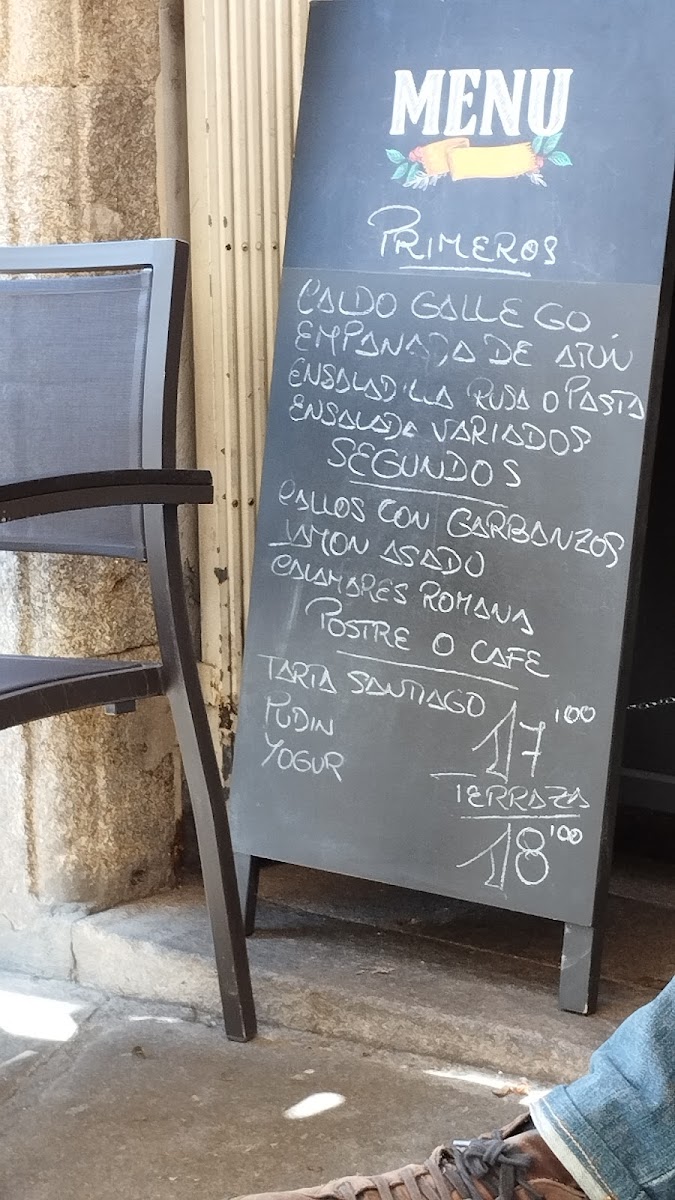 MENU
PRIMEROS
CALDO GALLEGO
EMPANADA DE ATÚN
ENSALADILLA RUSA O PASTA
ENSALADA VARIADOS
SEGUNDOS
CALLOS CON GARBANZOS
JAMON ASADO
CALAMARES ROMANA
POSTRE O CAFE
TARTA SANTIAGO
PUDIN
YOGUR
17'00
TERRAZA
18'00